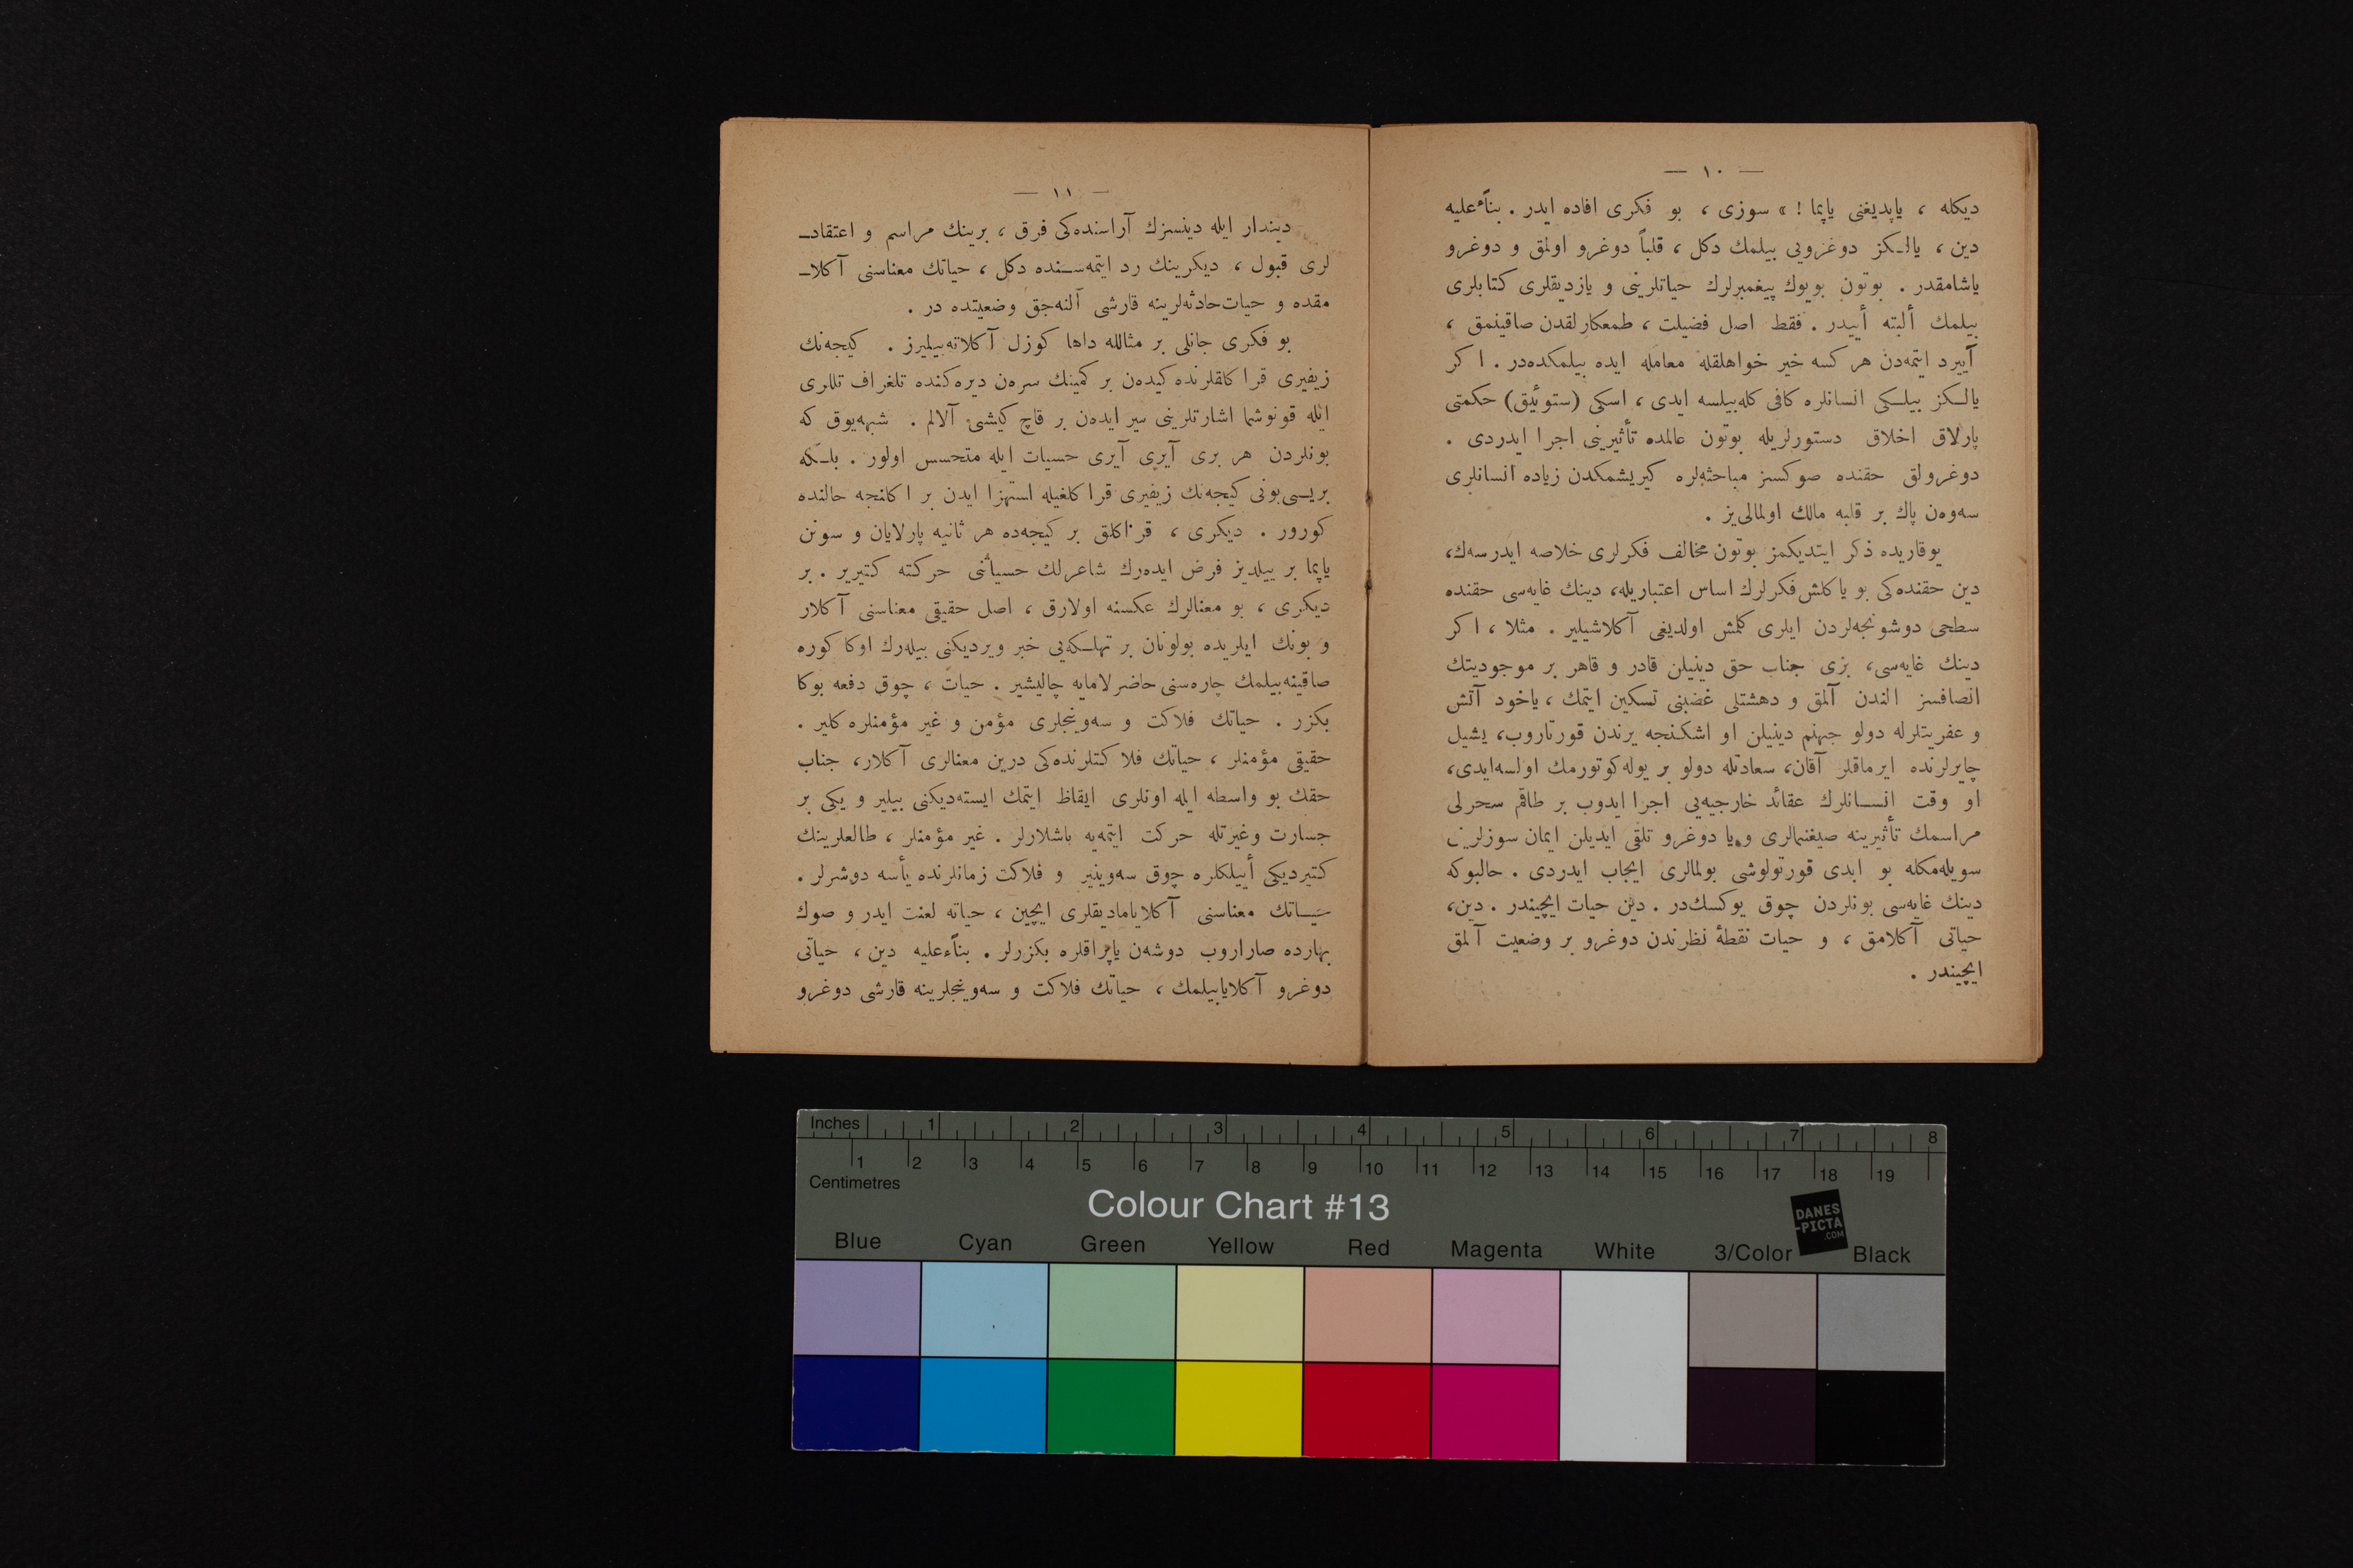 — ١٠ —
ديكله ، ياپديغنى ياپما ! » سوزى ، بو فكرى افاده ايدر . بناءً عليه
دين ، يالـكز دوغرويى بيلمك دكل ، قلباً دوغرو اولمق و دوغرو
ياشامقدر . بوتون بويوك پيغمبرلرك حياتلرينى و يازديقلرى كتابلرى
بيلمك ألبته أييدر . فقط اصل فضيلت ، طمعكارلقدن صاقينمق ،
آييرد ايتمه‌دن هر كسه خير خواهلقله معامله ايده بيلمكده‌در . ا كر
يالـكز بيلـكى انسانلره كافى كله‌بيلسه ايدى ، اسكى (ستوئيق) حكمتى
پارلاق اخلاق دستورلريله بوتون عالمده تأثيرينى اجرا ايدردى .
دوغرولق حقنده صوكسز مباحثه‌لره كيريشمكدن زياده انسانلرى
سه‌وه‌ن پاك بر قلبه مالك اولمالى‌يز .
يوقاريده ذكر ايتديكمز بوتون مخالف فكرلرى خلاصه ايدرسه‌ك،
دين حقنده‌كى بو ياكلش فكرلرك اساس اعتباريله، دينك غايه‌سى حقنده
سطحى دوشونجه‌لردن ايلرى كلمش اولديغى آكلاشيلير . مثلا ، ا كر
دينك غايه‌سى، بزى جناب حق دينيلن قادر و قاهر بر موجوديتك
انصافسز الندن آلمق و دهشتلى غضبنى تسكين ايتمك ، ياخود آتش
و عفريتلرله دولو جهنم دينيلن او اشكنجه يرندن قورتاروب، يشيل
چايرلرنده ايرماقلر آقان، سعادتله دولو بر يوله‌كوتورمك اولسه‌ايدى،
او وقت انسـانلرك عقائد خارجيه‌يى اجرا ايدوب بر طاقم سحرلى
مراسمك تأثيرينه صيغنمالرى ويا دوغرو تلقى ايديلن ايمان سوزلرين
سويله‌مكله بو ابدى قورتولوشى بولمالرى ايجاب ايدردى . حالبوكه
دينك غايه‌سى بونلردن چوق يوكسك‌در . دين حيات ايچيندر . دين،
حياتى آكلامق ، و حيات نقطهٔ نظرندن دوغرو بر وضعيت آلمق
ايچيندر .
— ١١ —
ديندار ايله دينسزك آراسنده‌كى فرق ، برينك مراسم و اعتقادـ
لرى قبول ، ديكرينك رد ايتمه‌سـنده دكل ، حياتك معناسنى آكلاـ
مقده و حيات حادثه‌لرينه قارشى آلنه‌جق وضعيتده در .
بو فكرى جانلى بر مثالله داها كوزل آكلاته‌بيليرز . كيجه‌نك
زيفيرى قرا كلقلرنده كيده‌ن بر كمينك سره‌ن ديره‌كنده تلغراف تللرى
ايله قونوشما اشارتلرينى سير ايده‌ن بر قاچ كيشئ آلالم . شبهه‌يوق كه
بونلردن هر برى آيرى آيرى حسيات ايله متحسس اولور . بلـكه
بريسى‌بونى كيجه‌نك زيفيرى قرا كلغيله استهزا ايدن بر اكلنجه حالنده
كورور . ديكرى ، قراكلق بر كيجه‌ده هر ثانيه پارلايان و سونن
ياپما بر ييلديز فرض ايده‌رك شاعرلك حسياتنى حركته كتيرير . بر
ديكرى ، بو معنالرك عكسنه اولارق ، اصل حقيقى معناسنى آكلار
و بونك ايلريده بولونان بر تهلـكه‌يى خبر ويرديكنى بيله‌رك اوكا كوره
صاقينه‌بيلمك چاره‌سنى حاضرلامايه چاليشير . حيات ، چوق دفعه بوكا
بكزر . حياتك فلاكت و سه‌وينجلرى مؤمن و غير مؤمنلره كلير .
حقيقى مؤمنلر ، حياتك فلاكتلرنده‌كى درين معنالرى آكلار، جناب
حقك بو واسطه ايله اونلرى ايقاظ ايتمك ايسته‌ديكنى بيلير و يكى بر
جسارت وغيرتله حركت ايتمه‌يه باشلارلر . غير مؤمنلر ، طالعلرينك
كتيرديكى أييلكلره چوق سه‌وينير و فلاكت زمانلرنده يأسه دوشرلر .
حيـاتك معناسنى آكلاياماديقلرى ايچين ، حياته لعنت ايدر و صوك
بهارده صاراروب دوشه‌ن ياپراقلره بكزرلر . بناءً عليه دين ، حياتى
دوغرو آكلايابيلمك ، حياتك فلاكت و سه‌وينجلرينه قارشى دوغرو
Inches 1 2 3 4 5 6 7 8
1 2 3 4 5 6 7 8 9 10 11 12 13 14 15 16 17 18 19
Centimetres
Colour Chart #13
DANES
-PICTA
.COM
Blue Cyan Green Yellow Red Magenta White 3/Color Black